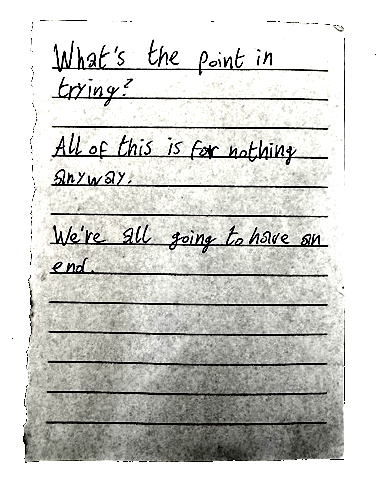 What's the point in
trying?
All of this is for nothing
anyway.
We're all going to have an
end.